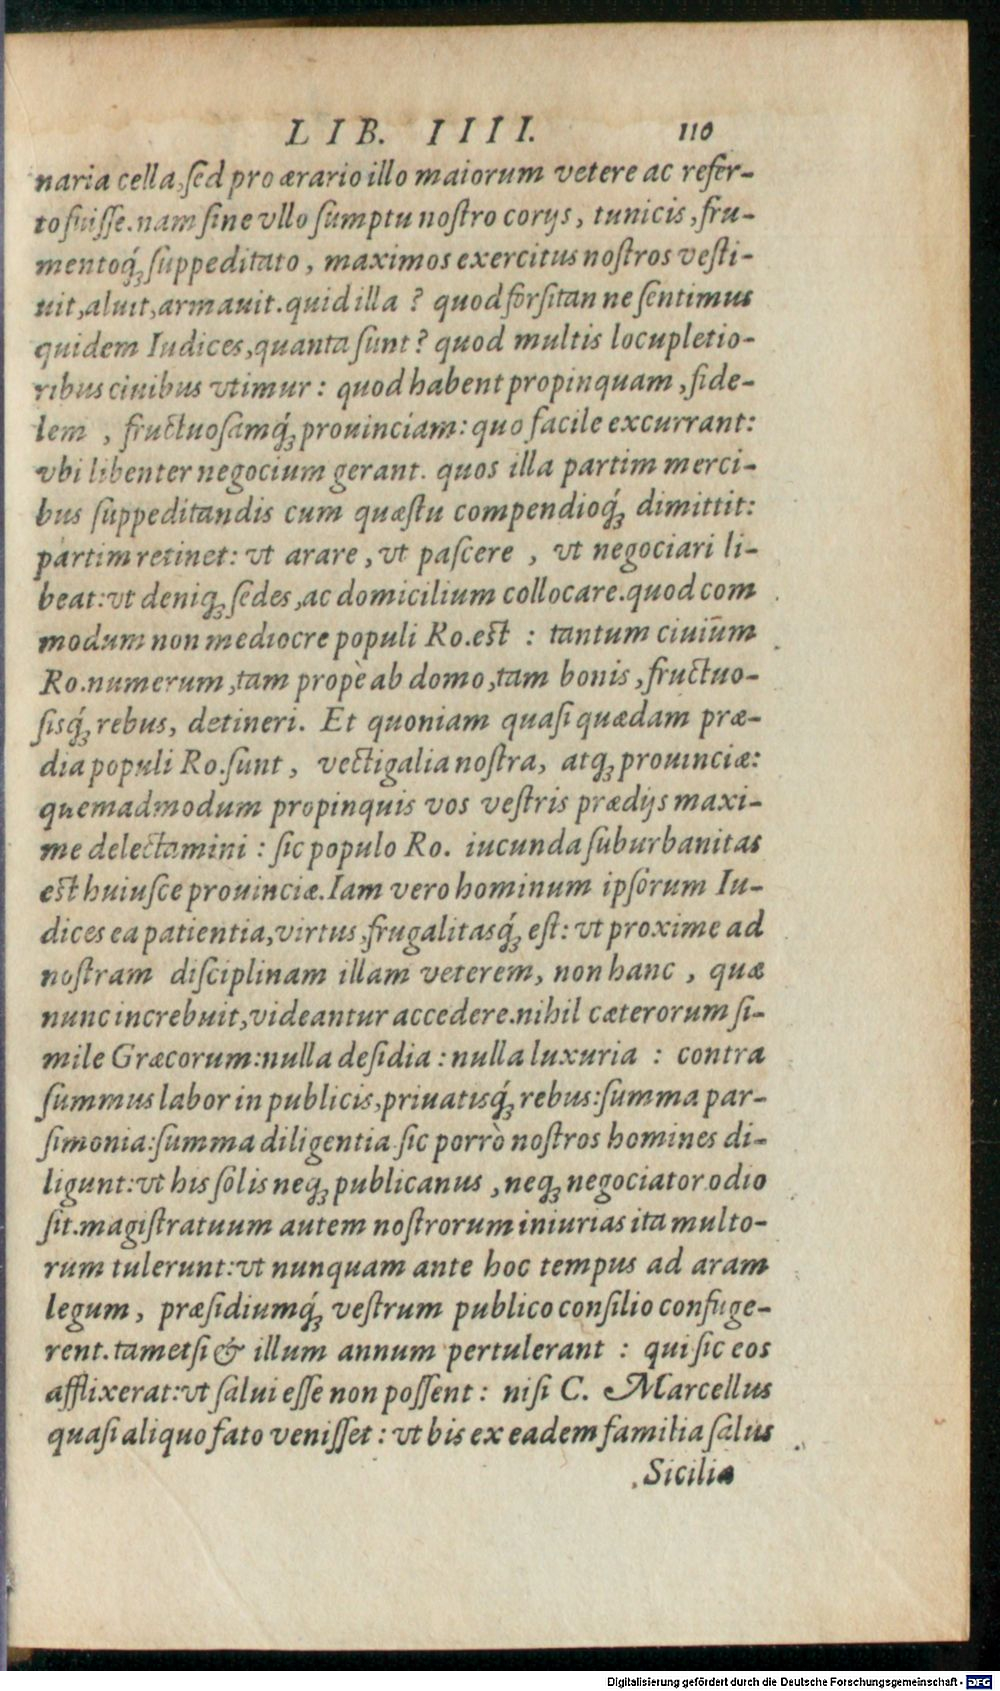 LIB. IIII. 110
naria cella, sed pro ærario illo maiorum vetere ac refer-
to fuisse. nam sine vllo sumptu nostro corijs, tunicis, fru-
mentoq́; suppeditato, maximos exercitus nostros vesti-
uit, aluit, armauit. quid illa ? quod forsitan ne sentimus
quidem Iudices, quanta sunt ? quod multis locupletio-
ribus ciuibus vtimur : quod habent propinquam, fide-
lem , fructuosamq́; prouinciam: quo facile excurrant:
vbi libenter negocium gerant. quos illa partim merci-
bus suppeditandis cum quæstu compendioq́; dimittit:
partim retinet: vt arare, vt pascere , vt negociari li-
beat: vt deniq; sedes, ac domicilium collocare. quod com
modum non mediocre populi Ro. est : tantum ciuiūm
Ro. numerum, tam propè ab domo, tam bonis, fructuo-
sisq́; rebus, detineri. Et quoniam quasi quædam præ-
dia populi Ro. sunt, vectigalia nostra, atq; prouinciæ:
quemadmodum propinquis vos vestris prædijs maxi-
me delectamini : sic populo Ro. iucunda suburbanitas
est huiusce prouinciæ. Iam vero hominum ipsorum Iu-
dices ea patientia, virtus, frugalitasq́; est: vt proxime ad
nostram disciplinam illam veterem, non hanc , quæ
nunc increbuit, videantur accedere. nihil cæterorum si-
mile Græcorum: nulla desidia : nulla luxuria : contra
summus labor in publicis, priuatisq́; rebus: summa par-
simonia: summa diligentia. sic porrò nostros homines di-
ligunt: vt his solis neq; publicanus , neq; negociator odio
sit. magistratuum autem nostrorum iniurias ita multo-
rum tulerunt: vt nunquam ante hoc tempus ad aram
legum, præsidiumq́; vestrum publico consilio confuge-
rent. tametsi & illum annum pertulerant : qui sic eos
afflixerat: vt salui esse non possent : nisi C. Marcellus
quasi aliquo fato venisset : vt bis ex eadem familia salus
Siciliæ
Digitalisierung gefördert durch die Deutsche Forschungsgemeinschaft - DFG